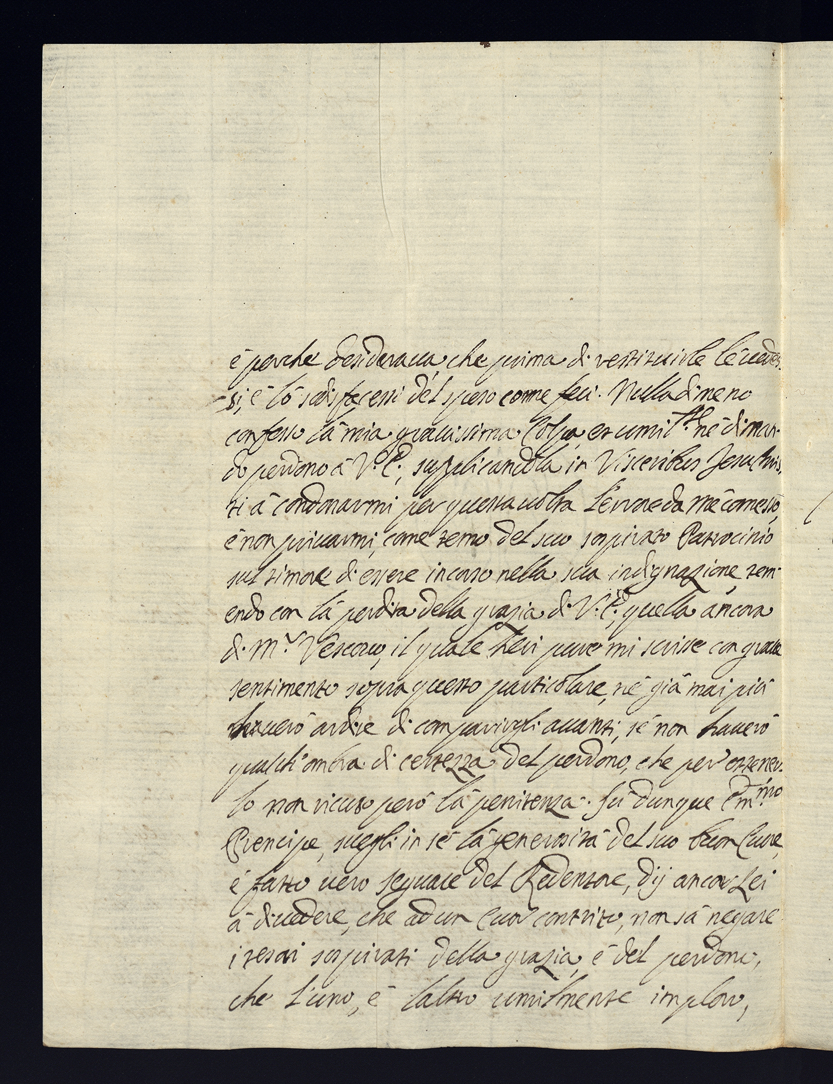 è perche desiderava, che prima di restituirle le vedes-
si, e lo sodisfacessi del speso come feci. Nulladimeno
confesso la mia gravissima Colpa et umil.te nè diman-
do perdono à V. E., supplicandola in Visceribus Jesu Chris-
ti à condonarmi per questa volta l'errore da mè comesso,
è non privarmi, come temo del suo sospirato Patrocinio
sul timore di essere incorso nella sua indignazione, tem-
endo con la perdita della grazia di V. E. quella ancora
di M.r Vescovo, il quale hieri pure mi scrisse con grave
sentimento sopra questo particolare, nè già mai più
haverò ardire di comparirgli avanti, sè non haverò
qualch'ombra di certezza del perdono, che per ottener-
lo non ricuso però la penitenza. Sù dunque Em.mo
Prencipe, svegli in sè la generosità del suo buon Cuore,
è fatto vero seguace del Redentore, dij ancor Lei
à divedere, che ad un Cuor contrito, non sà negare
i tesori sospirati della grazia, è del perdono,
che l'uno, è l'altro umilmente imploro,